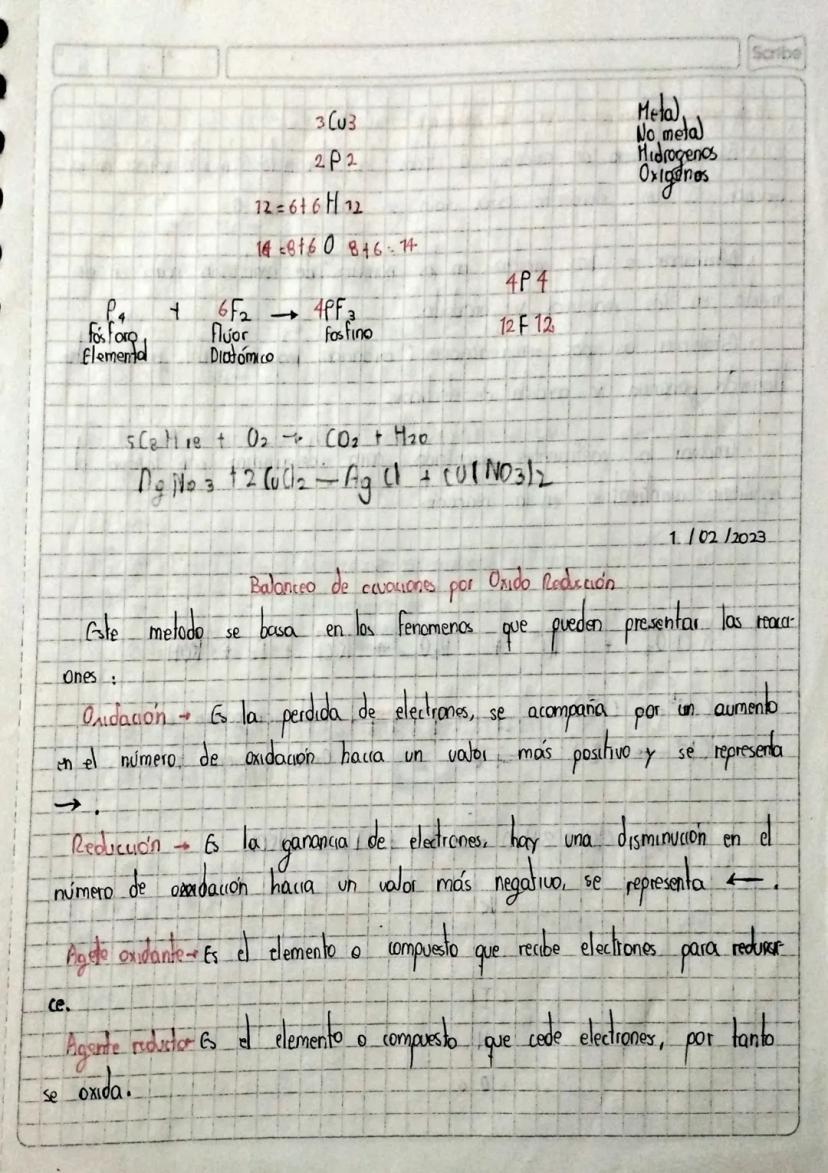 Scribe
3 Cu 3
2 P 2
12 = 6+6 H 12
14 = 8+6 O 8+6 = 14
Metal
No metal
Hidrogenos
Oxigenos
4 P 4
12 F 12
P₄ + 6F₂ → 4PF₃
Fósforo Flúor Fosfino
Elemental Diatómico
+ O₂ → CO₂ + H₂O
AgNo₃ + 2CuCl₂ — AgCl + CU(NO₃)₂
1 /02 /2023
Balanceo de ecuaciones por Oxido Reducción
Este metodo se basa en los fenomenos que pueden presentar las reacci-
ones :
Oxidación → Es la perdida de electrones, se acompaña por un aumento
en el número de oxidación hacia un valor más positivo y se representa
→ .
Reducción → Es la ganancia de electrones, hay una disminución en el
número de oxidación hacia un valor más negativo, se representa ← .
Agete oxidante → Es el elemento o compuesto que recibe electrones para reducir
ce.
Agente reductor Es el elemento o compuesto que cede electrones, por tanto
se oxida.